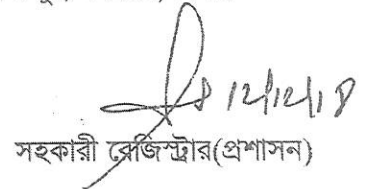 12/12/18
সহকারী রেজিস্ট্রার(প্রশাসন)